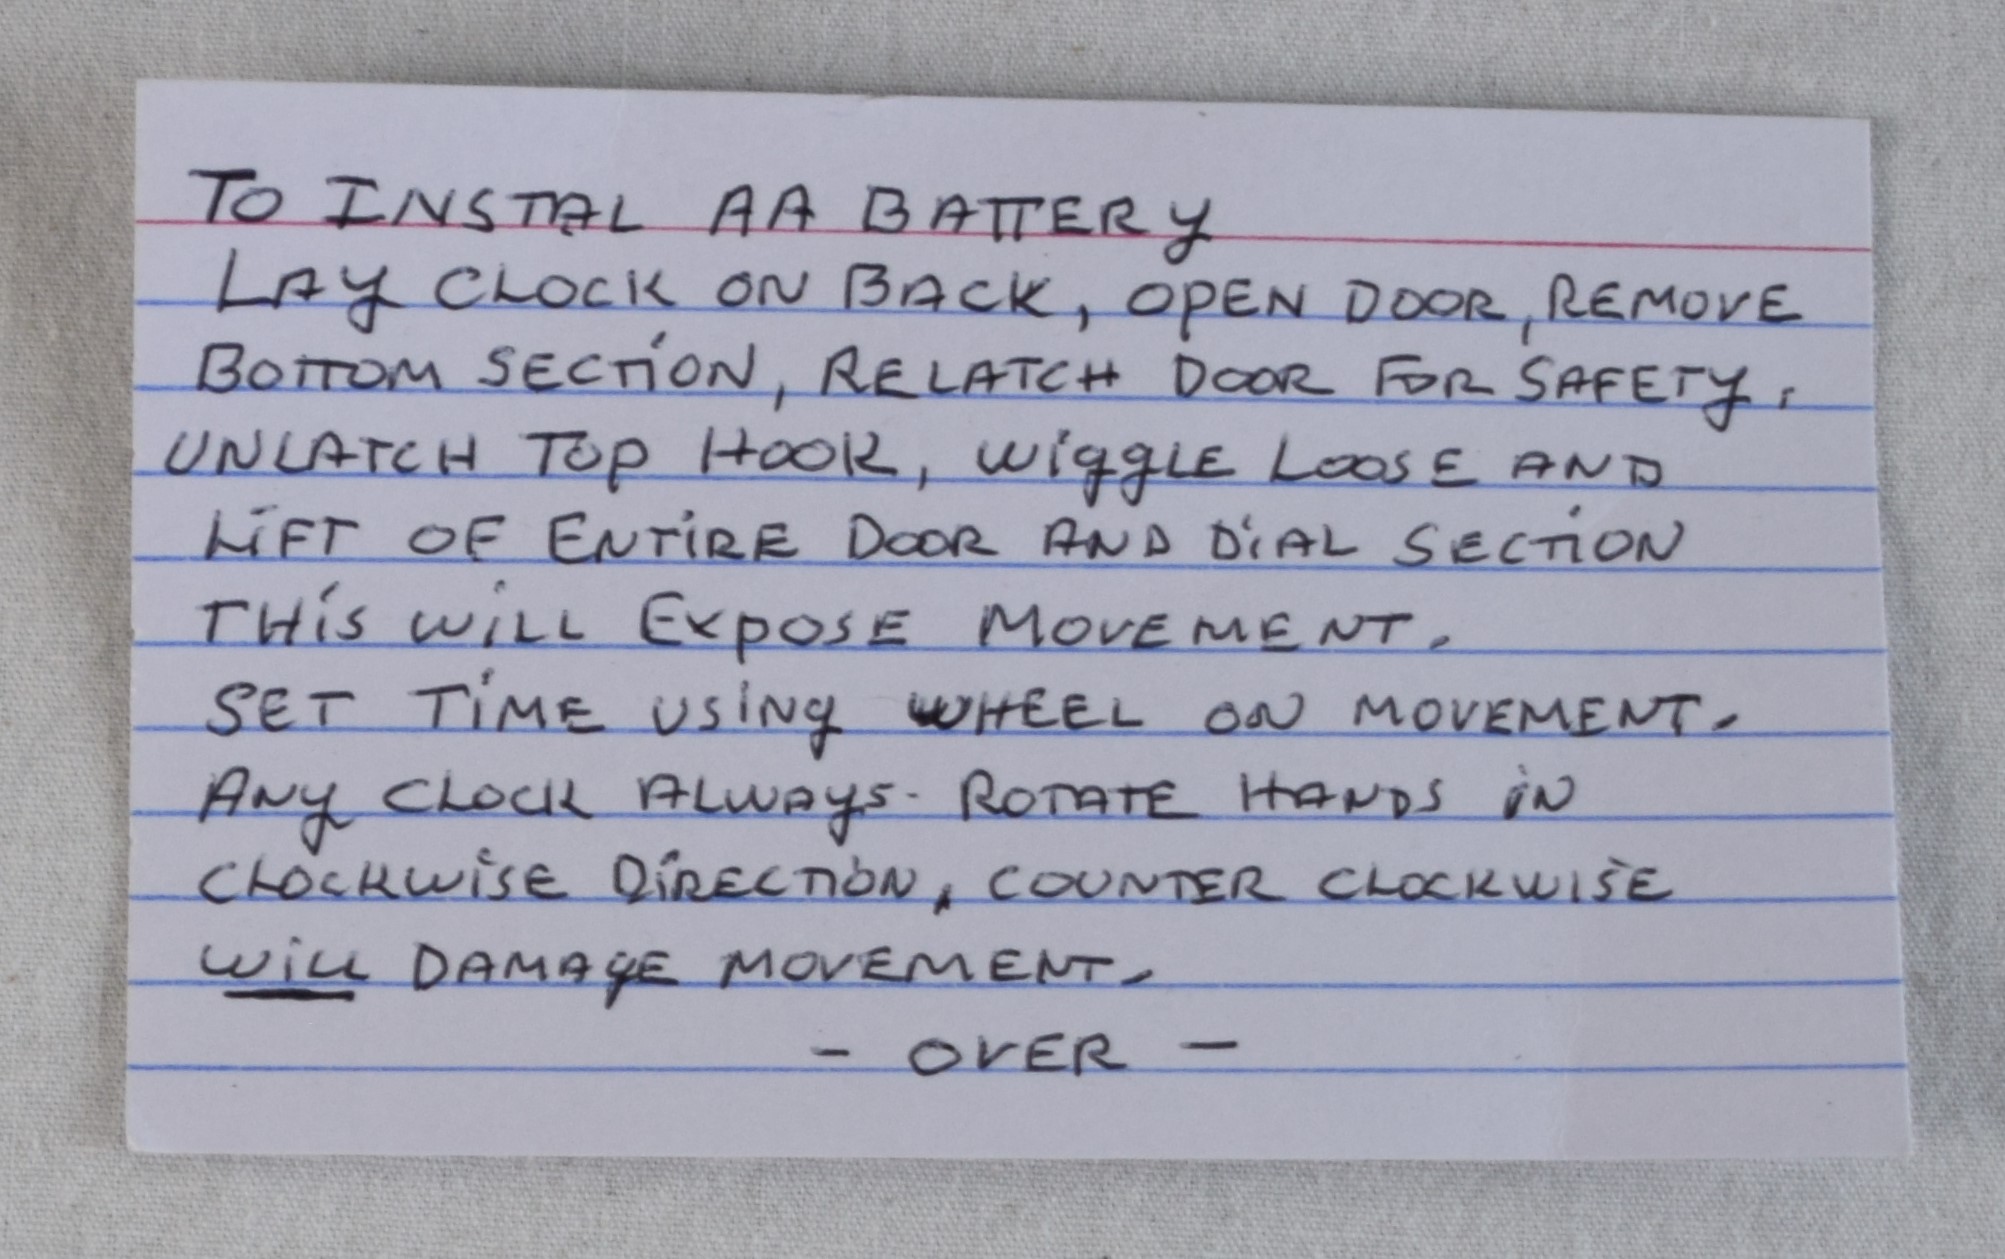 TO INSTAL AA BATTERY
LAY CLOCK ON BACK, OPEN DOOR, REMOVE
BOTTOM SECTION, RELATCH DOOR FOR SAFETY.
UNLATCH TOP HOOK, WIGGLE LOOSE AND
LIFT OF ENTIRE DOOR AND DIAL SECTION
THIS WILL EXPOSE MOVEMENT.
SET TIME USING WHEEL ON MOVEMENT.
ANY CLOCK ALWAYS - ROTATE HANDS IN
CLOCKWISE DIRECTION, COUNTER CLOCKWISE
WILL DAMAGE MOVEMENT.
- OVER -